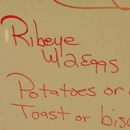 Ribeye
W/2 Eggs
Potatoes or
Toast or